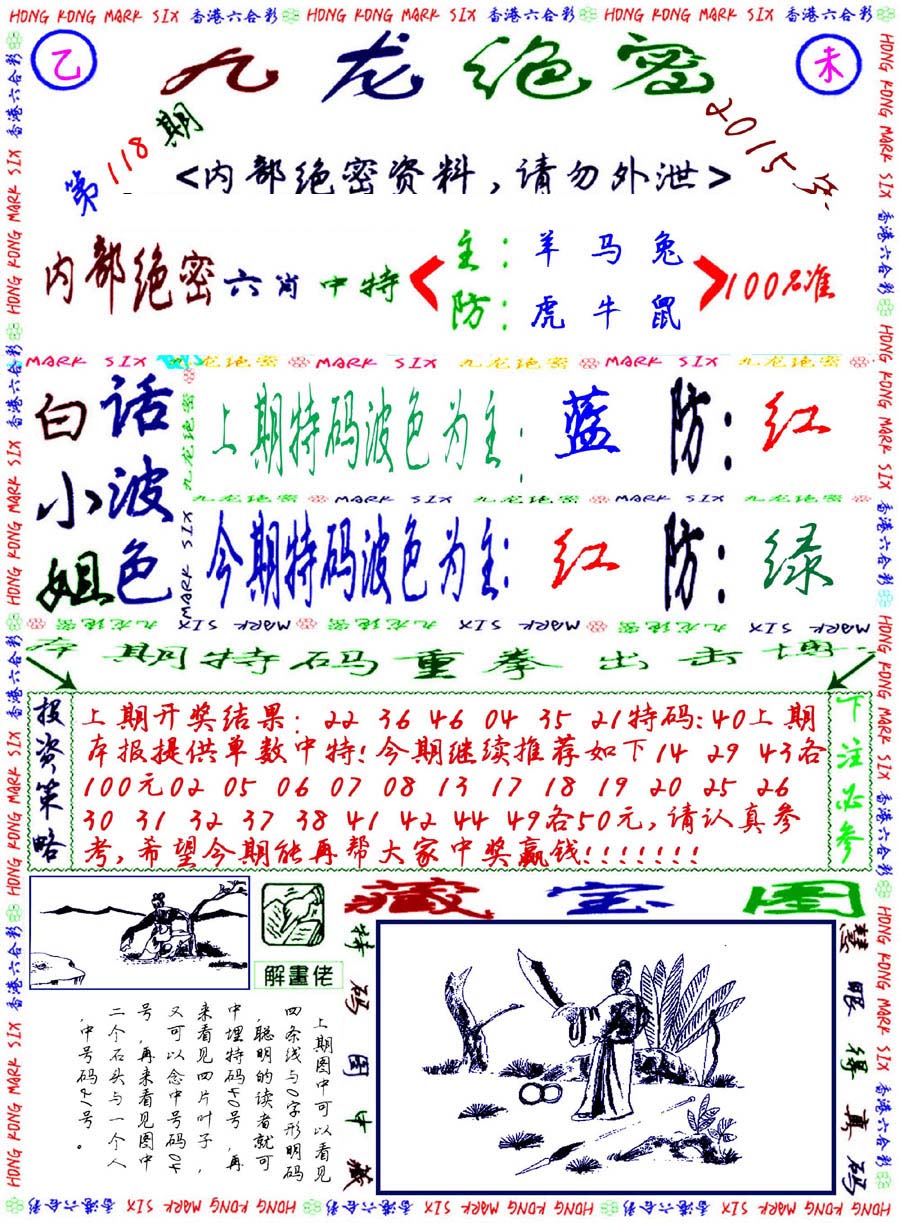 HONG KONG MARK SIX 香港六合彩 HONG KONG MARK SIX 香港六合彩 HONG KONG MARK SIX 香港六合彩
乙 九龙绝密 未
第118期
2015年
<内部绝密资料,请勿外泄>
内部绝密六肖中特
主:羊马兔
防:虎牛鼠
100%准
MARK SIX 九龙绝密 MARK SIX 九龙绝密 MARK SIX 九龙绝密
白小姐
话波色
上期特码波色为主:蓝 防:红
九龙绝密 MARK SIX 九龙绝密 MARK SIX 九龙绝密
今期特码波色为主:红 防:绿
MARK SIX 九龙绝密 MARK SIX 九龙绝密 MARK SIX 九龙绝密
本期特码重拳出击博
投资策略
上期开奖结果:22 36 46 04 35 21特码:40上期
本报提供单数中特!今期继续推荐如下14 29 43各
100元02 05 06 07 08 13 17 18 19 20 25 26
30 31 32 37 38 41 42 44 49各50元,请认真参
考,希望今期能再帮大家中奖赢钱!!!!!!!
下注必参
藏宝图
解畫佬
特码图中藏
慧眼得真码
上期图中可以看见
四条线与0字形明码
,聪明的读者就可
中埋特码40号,再
来看见四片叶子,
又可以念中号码40
号,再来看见图中
二个石头与一个人
,中号码21号。
HONG KONG MARK SIX 香港六合彩 HONG KONG MARK SIX 香港六合彩 HONG KONG MARK SIX 香港六合彩